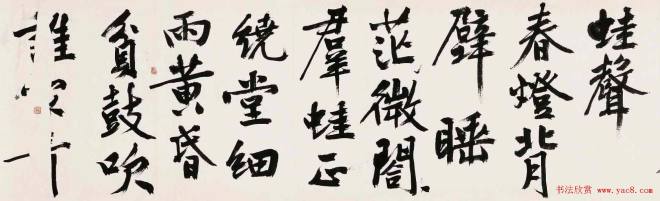 蛙聲
春燈背
壁睡
茫微閣、
羣蛙正
繞堂細
雨黃昏
貧鼓吹
誰家
书法欣赏 www.yac8.com